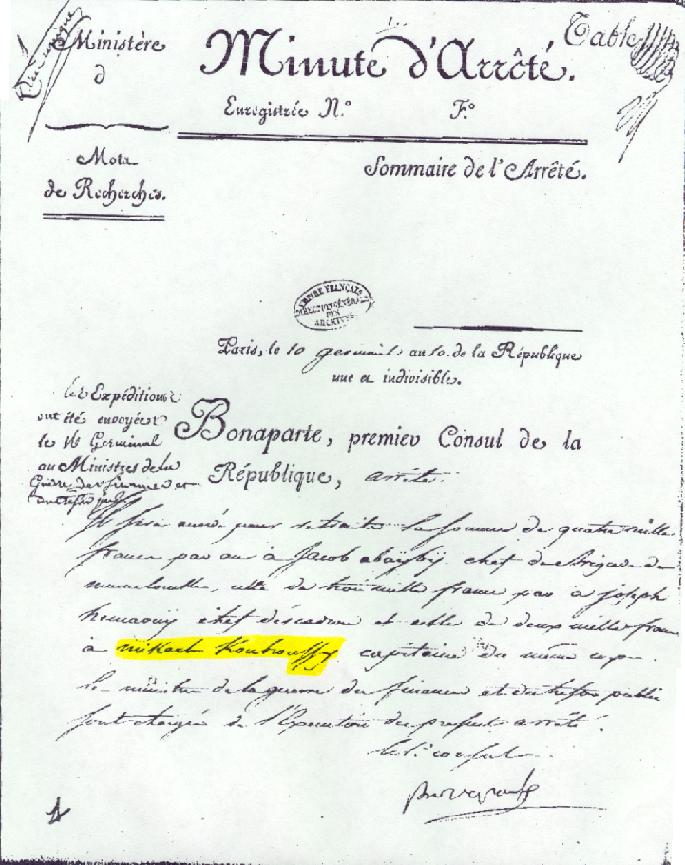 Ministère
d
Minute d'Arrêté.
Table
Enregistrée N.º F.º
Mots
de Recherches.
Sommaire de l'Arrêté.
EMPIRE FRANÇAIS
DIRECTION GÉNÉRALE
DES
ARCHIVES
Paris, le 10 germinal an 10. de la République
une et indivisible.
les Expéditions
ont été envoyées
le Germinal
au Ministres de la
Guerre des finances et
Bonaparte, premier Consul de la
République, arrête:
Il sera payé pour retraite la somme de quatre mille
francs par an à Jacob chef de Brigade de
celle de trois mille francs par à joseph
chef d'escadron et celle de deux mille francs
à mikael capitaine du même corps.
le ministre de la guerre des finances et du trésor public
sont chargés de l'Exécution du présent arrêté.
le 1er consul